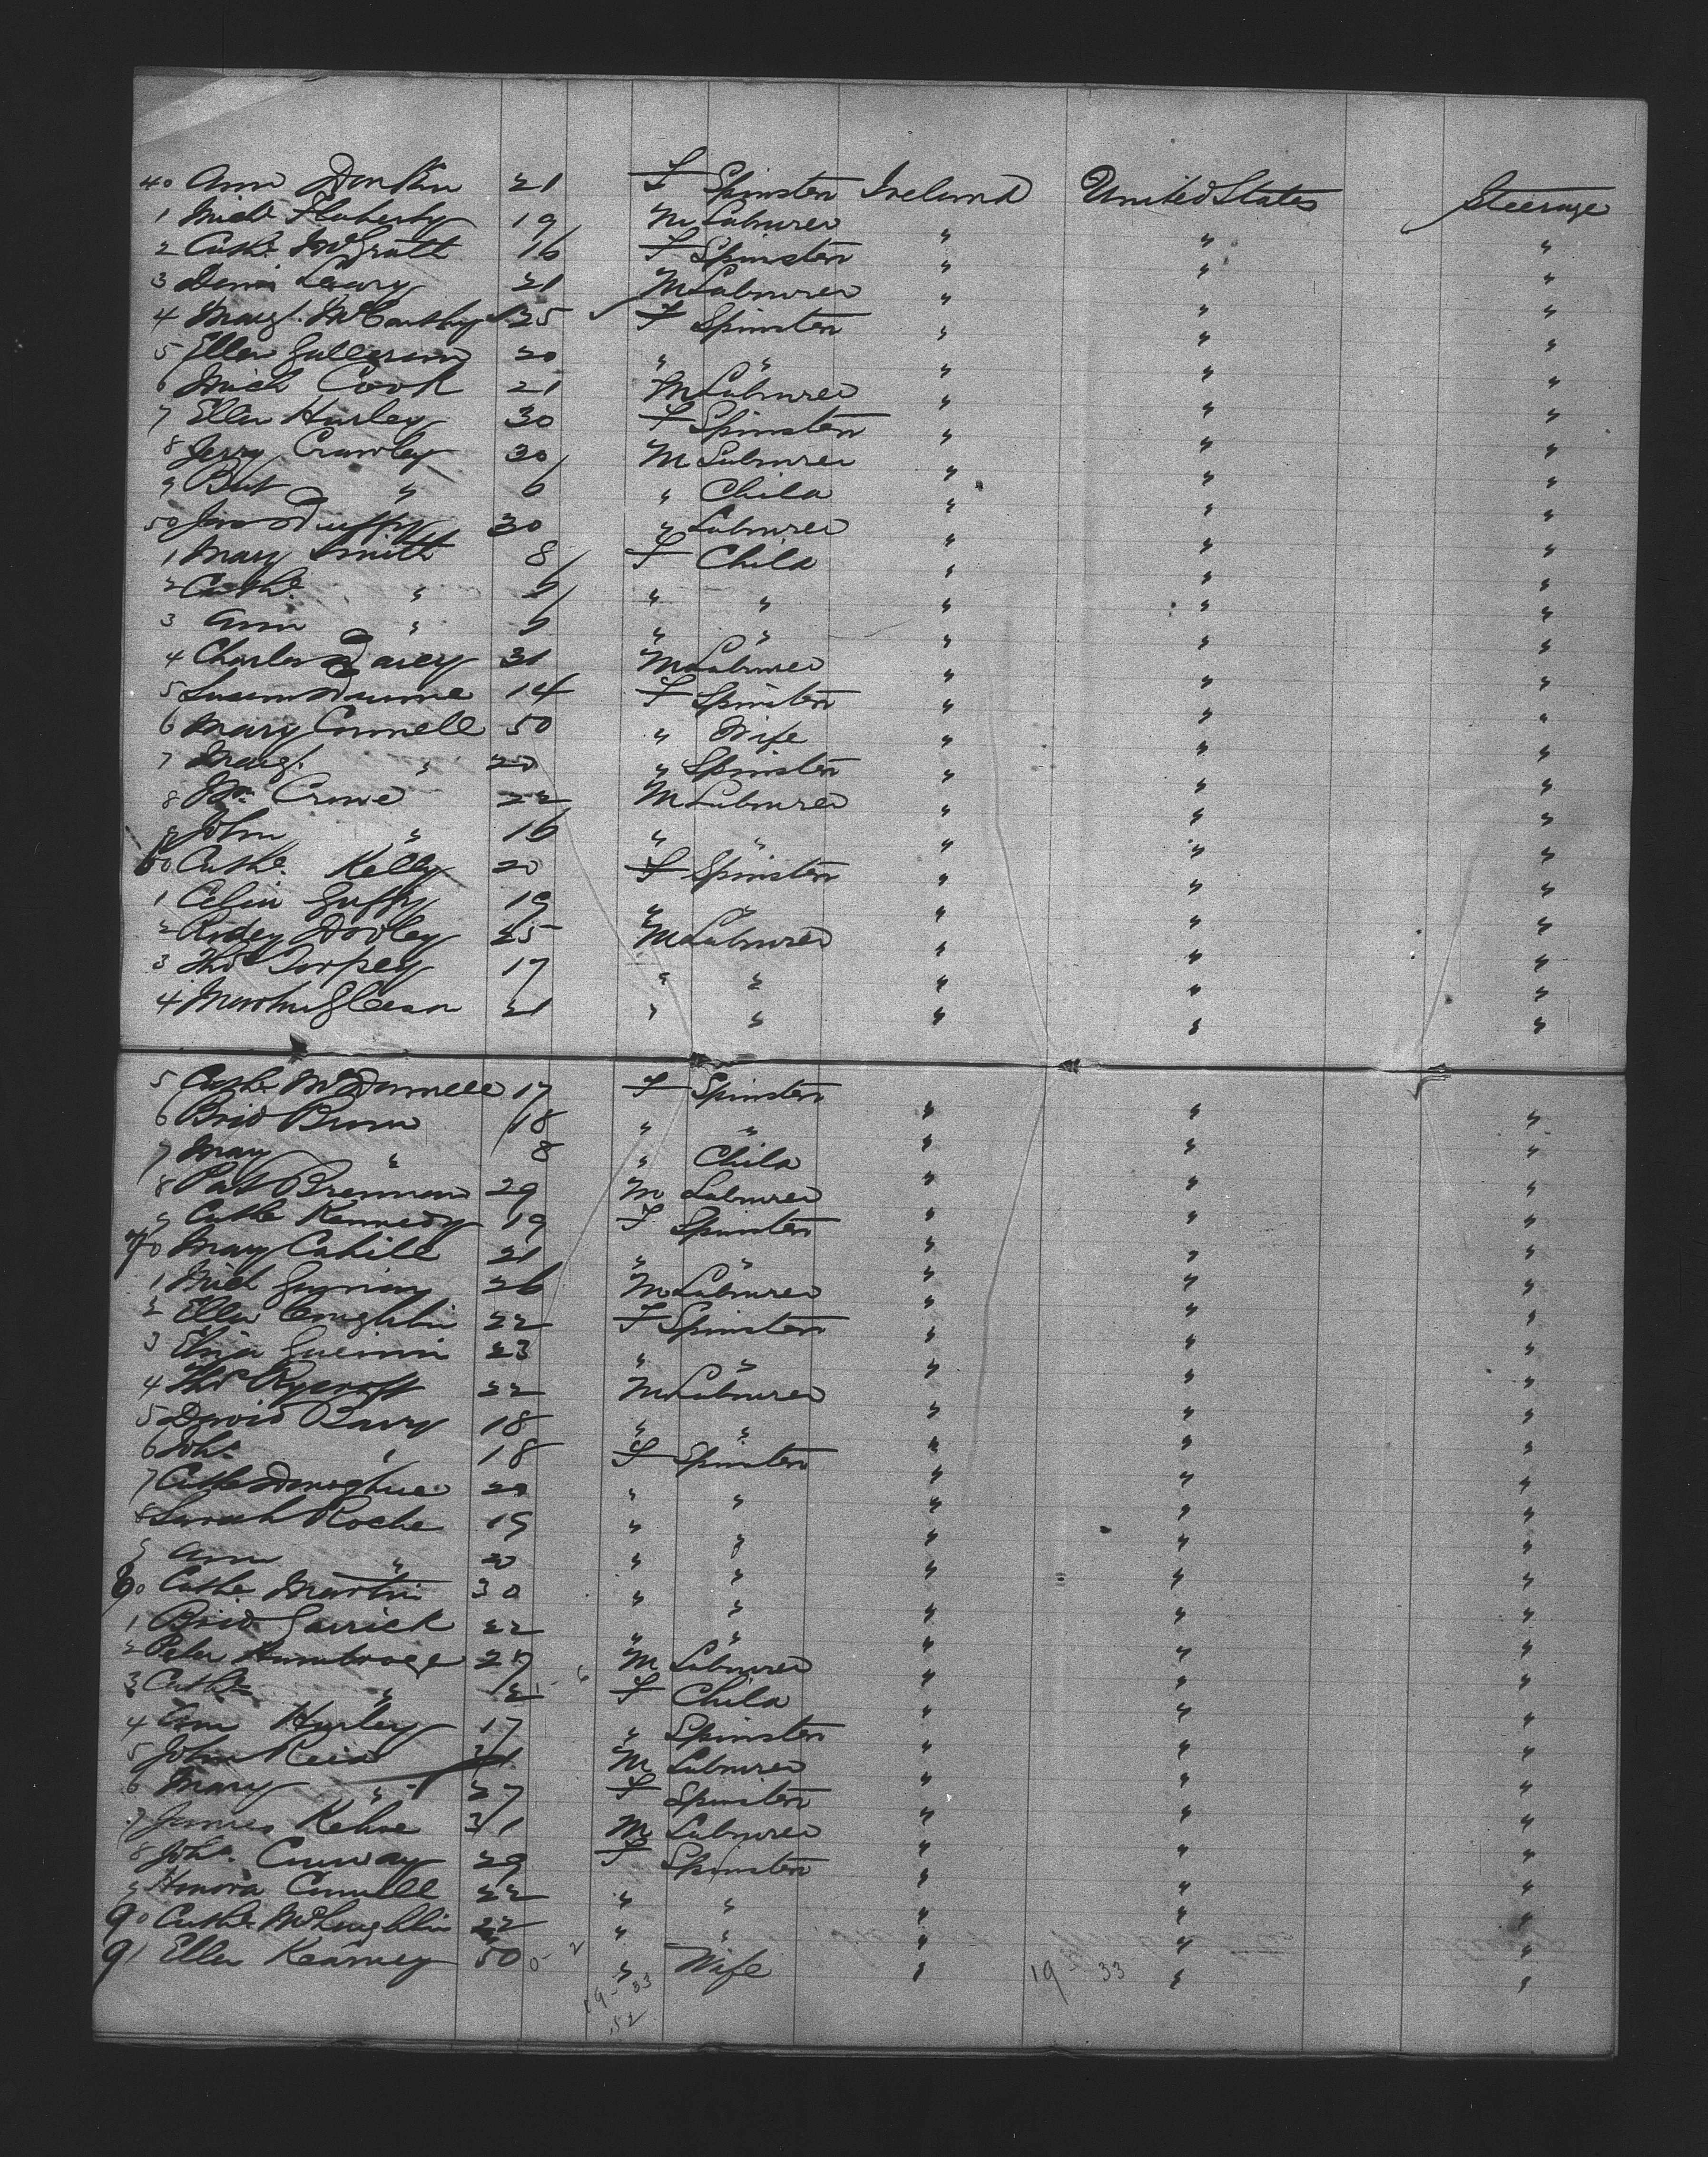 40 Ann Donlin 21 F Spinster Ireland United States Steerage
1 Mich Flaherty 19 M Labourer " " "
2 Cathe McGratt 16 F Spinster " " "
3 Denis Leary 21 M Labourer " " "
4 Margt. McCarthy 25 F Spinster " " "
5 Ellen 20 " " " " "
6 Mich Cook 21 M Labourer " " "
7 Ellen Hurley 30 F Spinster " " "
8 Jerry Crowley 30 M Labourer " " "
9 Bat " 6 " Child " " "
50 Jas Duffy 30 " Labourer " " "
1 Mary Smith 8 F Child " " "
2 Cathe " 6 " " " " "
3 Ann " 6 " " " " "
4 Charles Darcy 31 M Labourer " " "
5 Susan Dunne 14 F Spinster " " "
6 Mary Connell 50 " Wife " " "
7 Margt. " 20 " Spinster " " "
8 Wm. Crowe 22 M Labourer " " "
9 John " 16 " " " " "
60 Cathe. Kelly 20 F Spinster " " "
1 Celia Guffy 19 " " " " "
2 Dooley 25 M Labourer " " "
3 Thos Torpey 17 " " " " "
4 Martin Gleeson 21 " " " " "
5 Cathe McDonnell 17 F Spinster " " "
6 Brid 18 " " " " "
7 May " 8 " Child " " "
8 Pat Brennan 29 M Labourer " " "
9 Cathe Kennedy 19 F Spinster " " "
70 May Cahill 21 " " " " "
1 Mich 26 M Labourer " " "
2 Ellen Coughlin 22 F Spinster " " "
3 Eliza 23 " " " " "
4 Thos Rycroft 22 M Labourer " " "
5 David Barry 18 " " " " "
6 Joha " 18 F Spinster " " "
7 Cathe Donoghue 20 " " " " "
8 Sarah Roche 19 " " " " "
9 Ann " 20 " " " " "
80 Cathe Martin 30 " " " " "
1 Brid Garrick 22 " " " " "
2 Peter 27 M Labourer " " "
3 Cathe " F Child " " "
4 Ann Hurley 17 " Spinster " " "
5 John Reid 31 M Labourer " " "
6 Mary " 27 F Spinster " " "
7 James Kehoe 31 M Labourer " " "
8 Joha. Conway 29 F Spinster " " "
9 Honora Connell 22 " " " " "
90 Cathe McLoughlin 22 " " " " "
91 Ellen Kearney 50 " Wife " " "
19 33